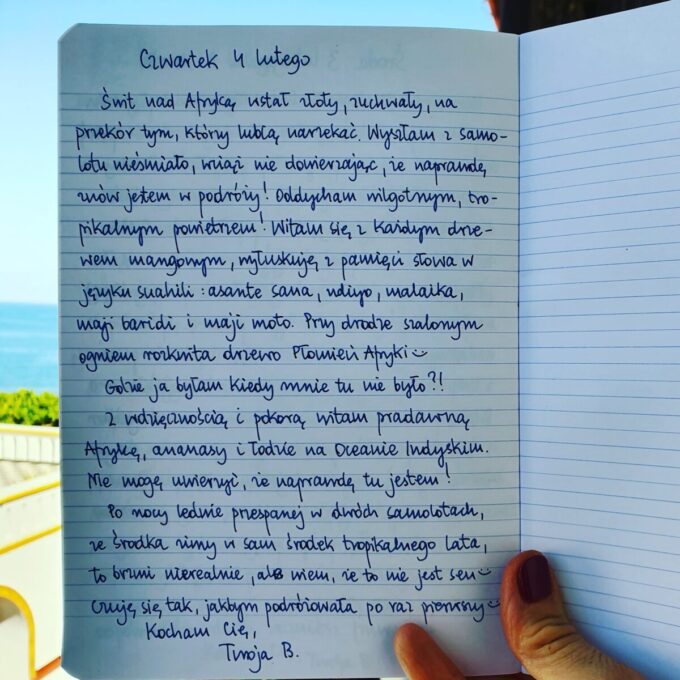 Czwartek 4 lutego
Świt nad Afryką wstał złoty, zuchwały, na
przekór tym, którzy lubią narzekać. Wyszłam z samo-
lotu nieśmiało, wciąż nie dowierzając, że naprawdę
znów jestem w podróży! Oddycham wilgotnym, tro-
pikalnym powietrzem! Witam się z każdym drze-
wem mangowym, wyłuskuję z pamięci słowa w
języku suahili : asante sana, ndiyo, malaika,
maji baridi i maji moto. Przy drodze szalonym
ogniem rozkwita drzewo Płomień Afryki
Gdzie ja byłam kiedy mnie tu nie było?!
Z wdzięcznością i pokorą witam pradawną
Afrykę, ananasy i łodzie na Oceanie Indyjskim.
Nie mogę uwierzyć, że naprawdę tu jestem!
Po nocy ledwie przespanej w dwóch samolotach,
ze środka zimy w sam środek tropikalnego lata,
to brzmi nierealnie, ale wiem, że to nie jest sen
Czuję się tak, jakbym podróżowała po raz pierwszy
Kocham Cię,
Twoja B.